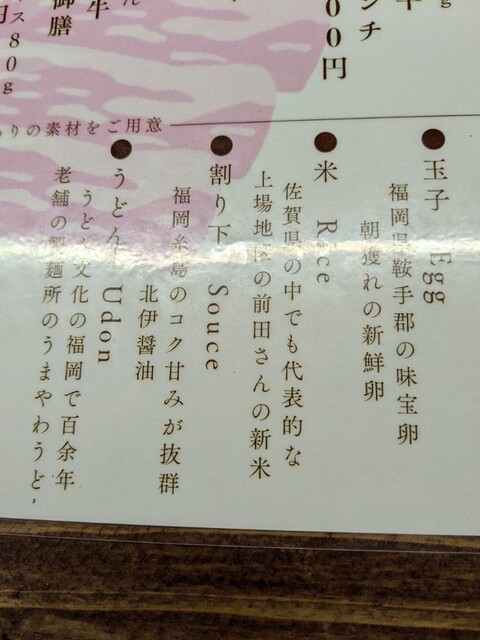 ンチ
00円
牛
御膳
ス80g
りの素材をご用意
●玉子 Egg
福岡県鞍手郡の味宝卵
朝獲れの新鮮卵
●米 Rice
佐賀県の中でも代表的な
上場地区の前田さんの新米
●割り下 Souce
福岡糸島のコク甘みが抜群
北伊醤油
●うどん Udon
うどん文化の福岡で百余年
老舗の製麺所のうまやわうどん